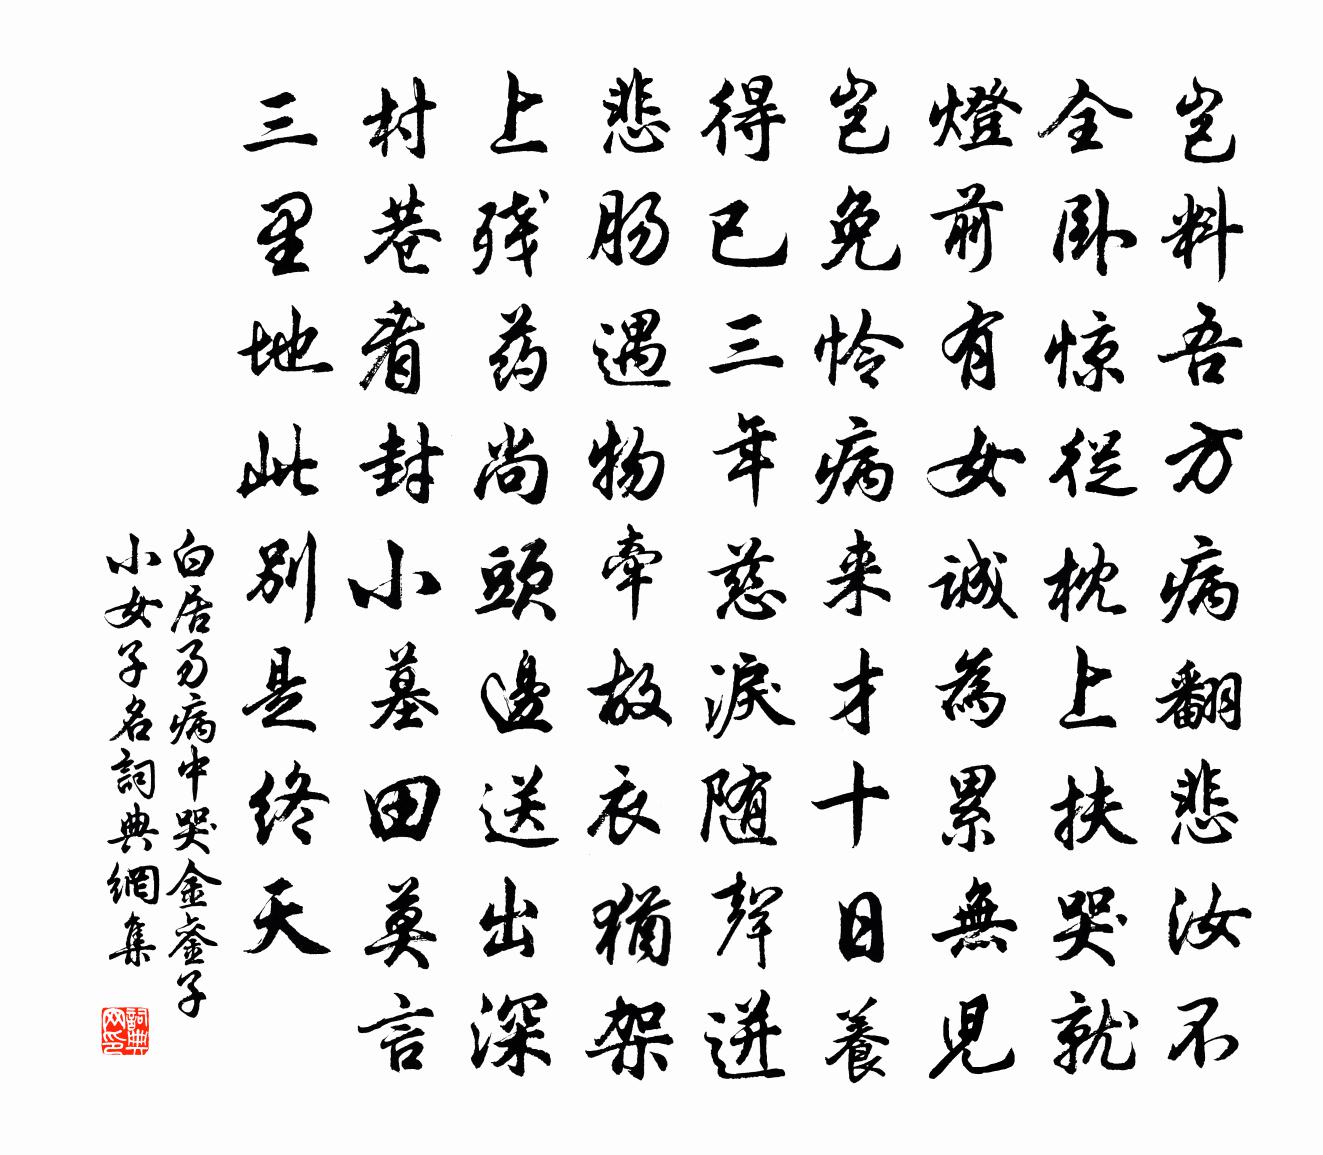 岂料吾方病翻悲汝不
全卧惊從枕上扶哭就
燈前有女誠為累無児
岂免怜病来才十日養
得已三年慈淚随聲迸
悲肠遇物牵故衣猶架
上残药尚頭邊送出深
村巷看封小墓田莫言
三里地此别是终天
白居易病中哭金銮子
小女子名詞典網集
詞典网印